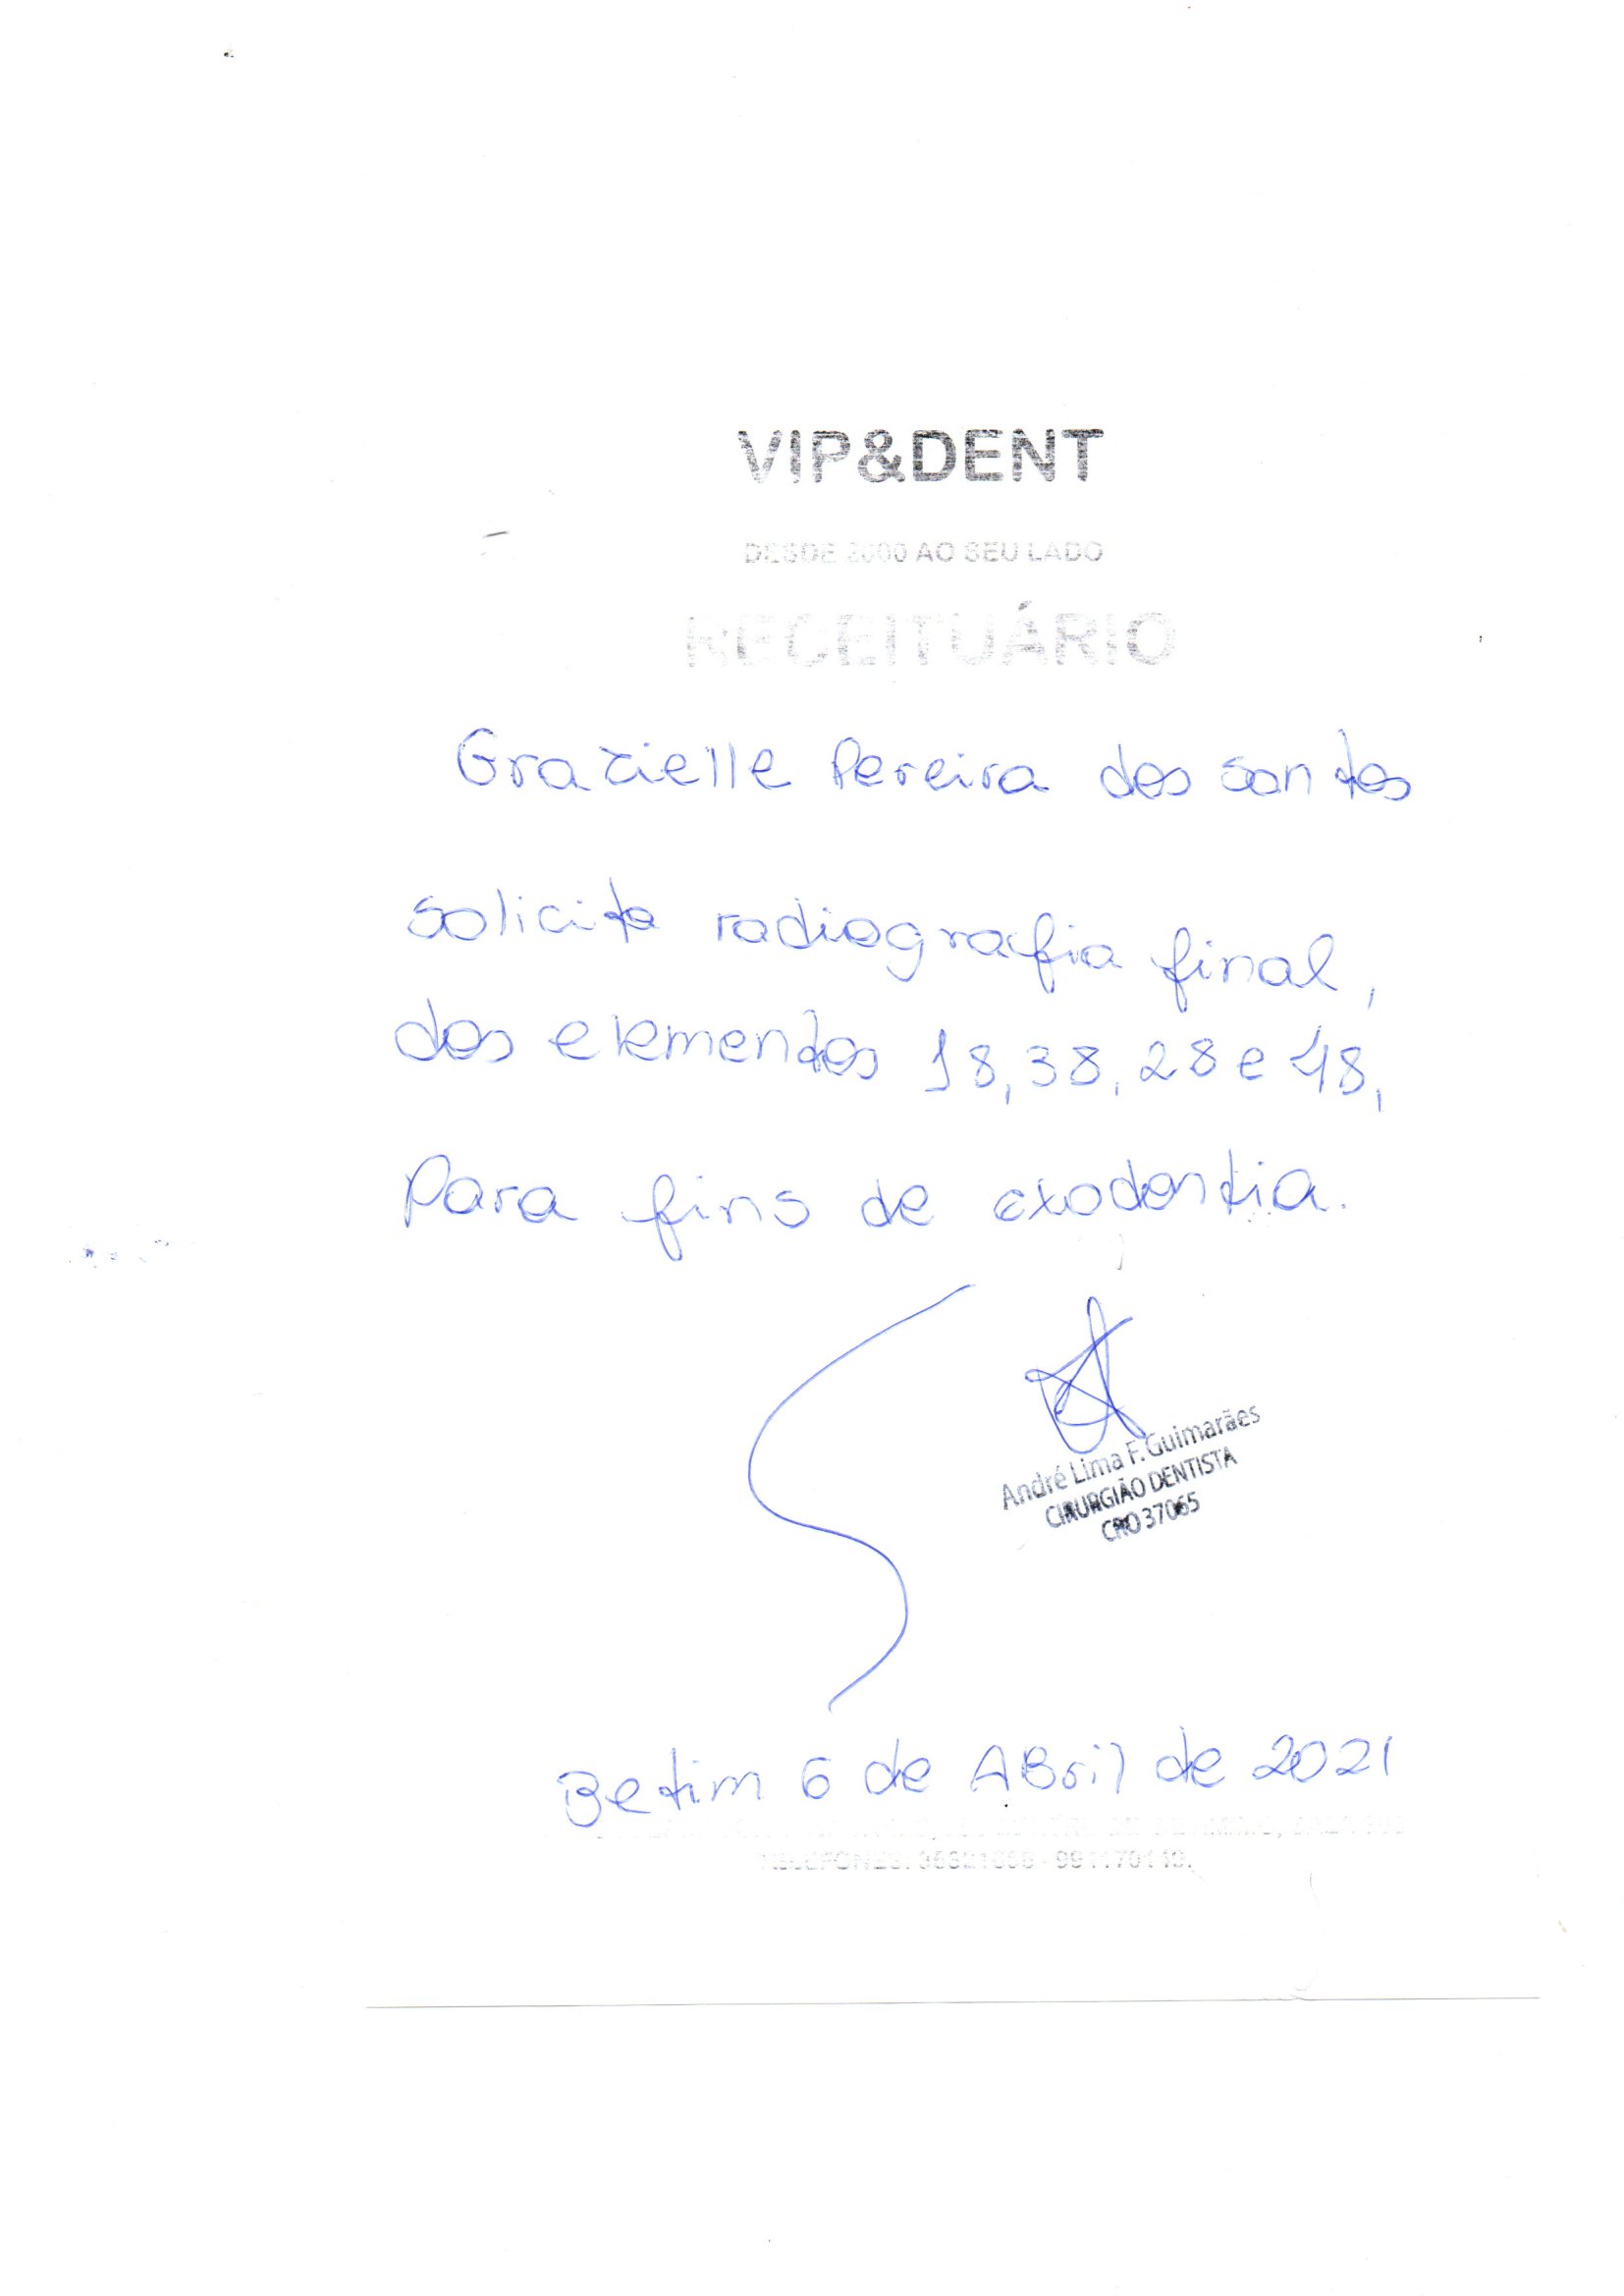 VIP&DENT
DESDE 2000 AO SEU LADO
RECEITUÁRIO
Grazielle Pereira dos santos
solicita radiografia final,
dos elementos 18, 38, 28 e 48,
Para fins de exodontia.
André Lima F. Guimarães
CIRURGIÃO DENTISTA
CRO 37065
Betim 6 de ABril de 2021
TELEFONES: